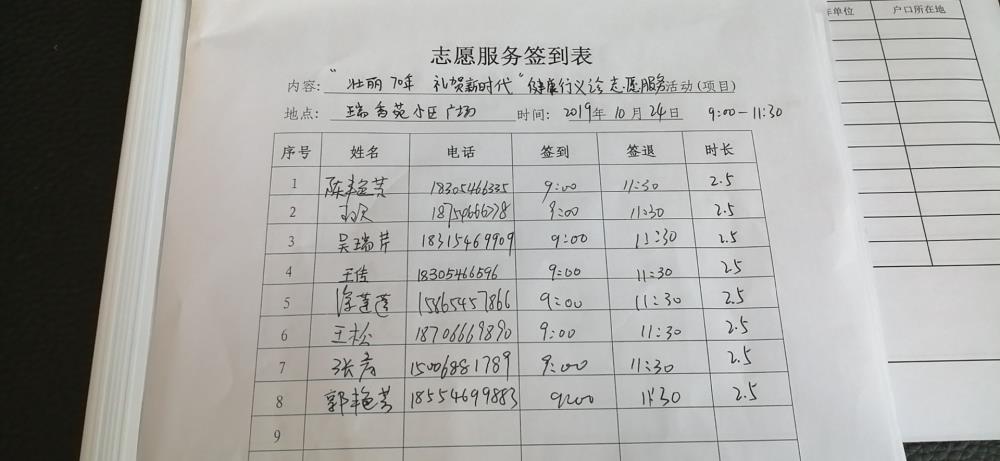 年单位 户口所在地
志愿服务签到表
内容: "壮丽70年 礼贺新时代"健康行义诊志愿服务活动(项目)
地点: 瑞香苑小区广场 时间: 2019年10月24日 9:00-11:30
序号 姓名 电话 签到 签退 时长
1 陈艳芳 18305466335 9:00 11:30 2.5
2 18754666778 9:00 11:30 2.5
3 吴瑞芹 18315469909 9:00 11:30 2.5
4 王倩 18305466596 9:00 11:30 2.5
5 徐莲莲 15865457866 9:00 11:30 2.5
6 王松 18706669890 9:00 11:30 2.5
7 张彦 15006881789 9:00 11:30 2.5
8 郭艳芳 18554699883 9:00 11:30 2.5
9